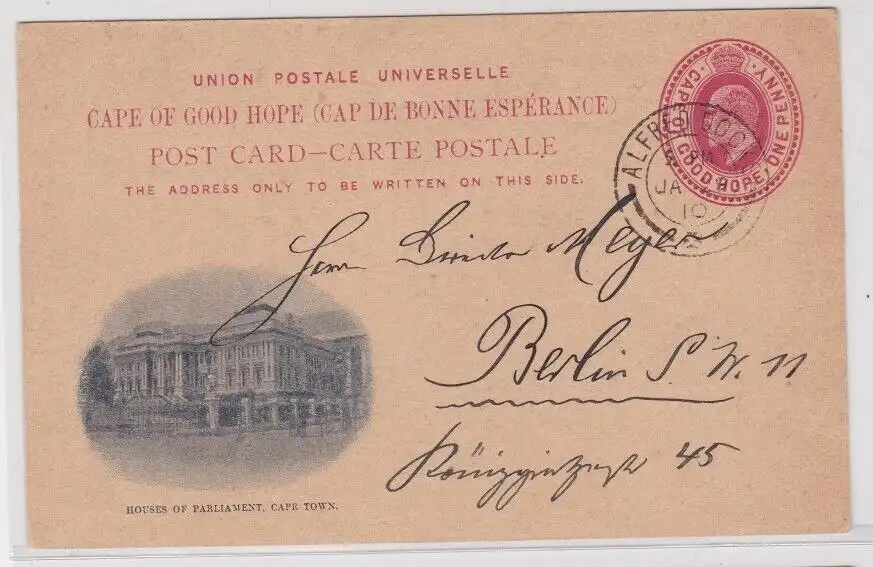 UNION POSTALE UNIVERSELLE
CAPE OF GOOD HOPE (CAP DE BONNE ESPÉRANCE)
POST CARD—CARTE POSTALE
THE ADDRESS ONLY TO BE WRITTEN ON THIS SIDE.
CAPE OF GOOD HOPE. ONE PENNY.
ALFRED DOCK
JA
10
Herrn Director Meyer
Berlin S. W. 11
Königgrätzerstr 45
HOUSES OF PARLIAMENT, CAPE TOWN.